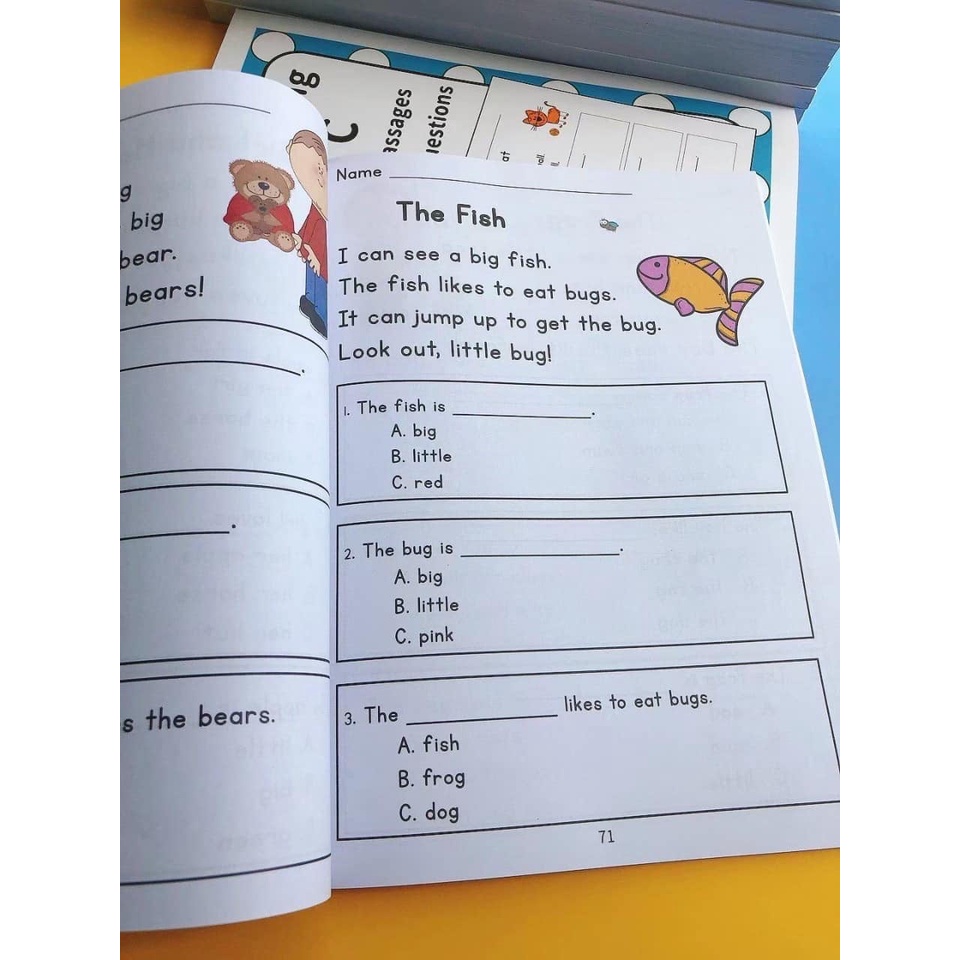 big
bear.
bears!
s the bears.
assages
estions
Name
The Fish
I can see a big fish.
The fish likes to eat bugs.
It can jump up to get the bug.
Look out, little bug!
1. The fish is ____________.
A. big
B. little
C. red
2. The bug is ____________.
A. big
B. little
C. pink
3. The ____________ likes to eat bugs.
A. fish
B. frog
C. dog
71